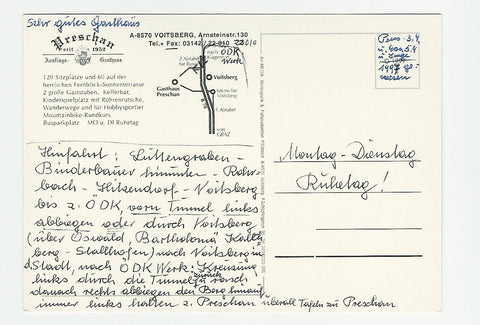 Sehr gutes Gasthaus
Preschan
seit 1952
Ausflugs- Gasthaus
A-8570 VOITSBERG, Arnsteinstr.130
Tel.+ Fax: 03142/22 010
120 Sitzplätze und 60 auf der
herrlichen Fernblick-Sonnenterrasse
2 große Gaststuben, Kellerbar,
Kinderspielplatz mit Röhrenrutsche,
Wanderwege und für Hobbysportler
Mountainbike-Rundkurs
Busparkplatz MO u. DI Ruhetag
ÖDK
Werk
2. Abfahrt
Voitsberg
Gasthaus
Preschan
1. Abfahrt
von
GRAZ
Pens. S.K.
1997 ge-
wesen
Hinfahrt: Lüttengraben -
Binderbauer hinunter - Rohr-
bach - Hitzendorf - Voitsberg
bis z. ÖDK, vorn Tunnel links
abbiegen oder durch Voitsberg
(über Oswald, Bartholomä Kalch
berg - Stallhofen) nach Voitsberg in
d. Stadt, nach ÖDK Werk: Kreuzung
links durch die Tunnel zurück rasch
danach rechts abbiegen den Berg hinauf
immer links halten z. Preschan überall Tafeln zu Preschan
Montag - Dienstag
Ruhetag!